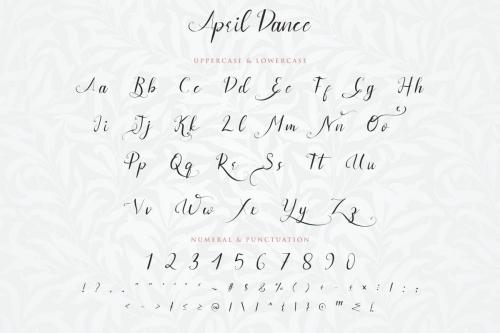 April Dance
UPPERCASE & LOWERCASE
Aa Bb Cc Dd Ee Ff Gg Hh
Ii Jj Kk Ll Mm Nn Oo
Pp Qq Rr Ss Tt Uu
Vv Ww Xx Yy Zz
NUMERAL & PUNCTUATION
1 2 3 4 5 6 7 8 9 0